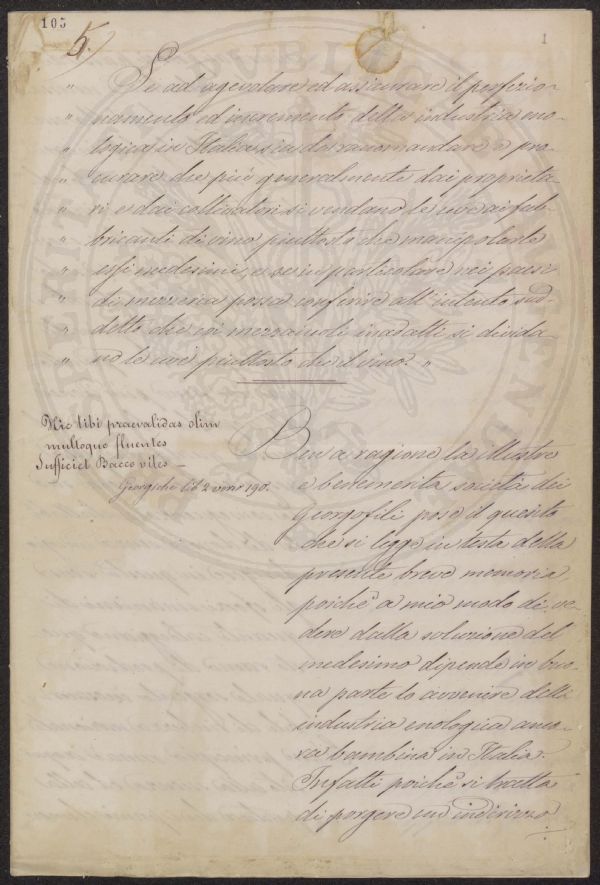 105
5.
1
" Se ad agevolare ed assicurare il perfezio-
" namento ed incremento della industria eno-
" logica in Italia sia da raccomandare e pro-
" curare che più generalmente dai proprieta-
" ri e dai coltivatori si vendano le uve ai fab-
" bricanti di vino piuttosto che manipolarle
" essi medesimi, e se in particolare nei paesi
" di mezzeria possa conferire all'intento sud-
" detto che coi mezzaiuoli inadatti si divida-
" no le uve piuttosto che il vino. "
Hic tibi praevalidas olim
multoque fluentes
Sufficiet Bacco vites —
Georgiche lib 2 verso 190.
Ben a ragione la illustre
e benemerita società dei
Georgofili pose il quesito
che si legge in testa della
presente breve memoria,
poichè a mio modo di ve-
dere dalla soluzione del
medesimo dipende in buo-
na parte lo avvenire della
industria enologica anco-
ra bambina in Italia.
Infatti poichè si tratta
di porgere un indirizzo